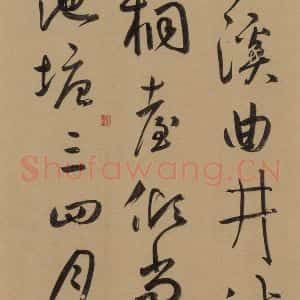 溪曲井
桐臺倚當
池塘三四月
Shufawang.CN